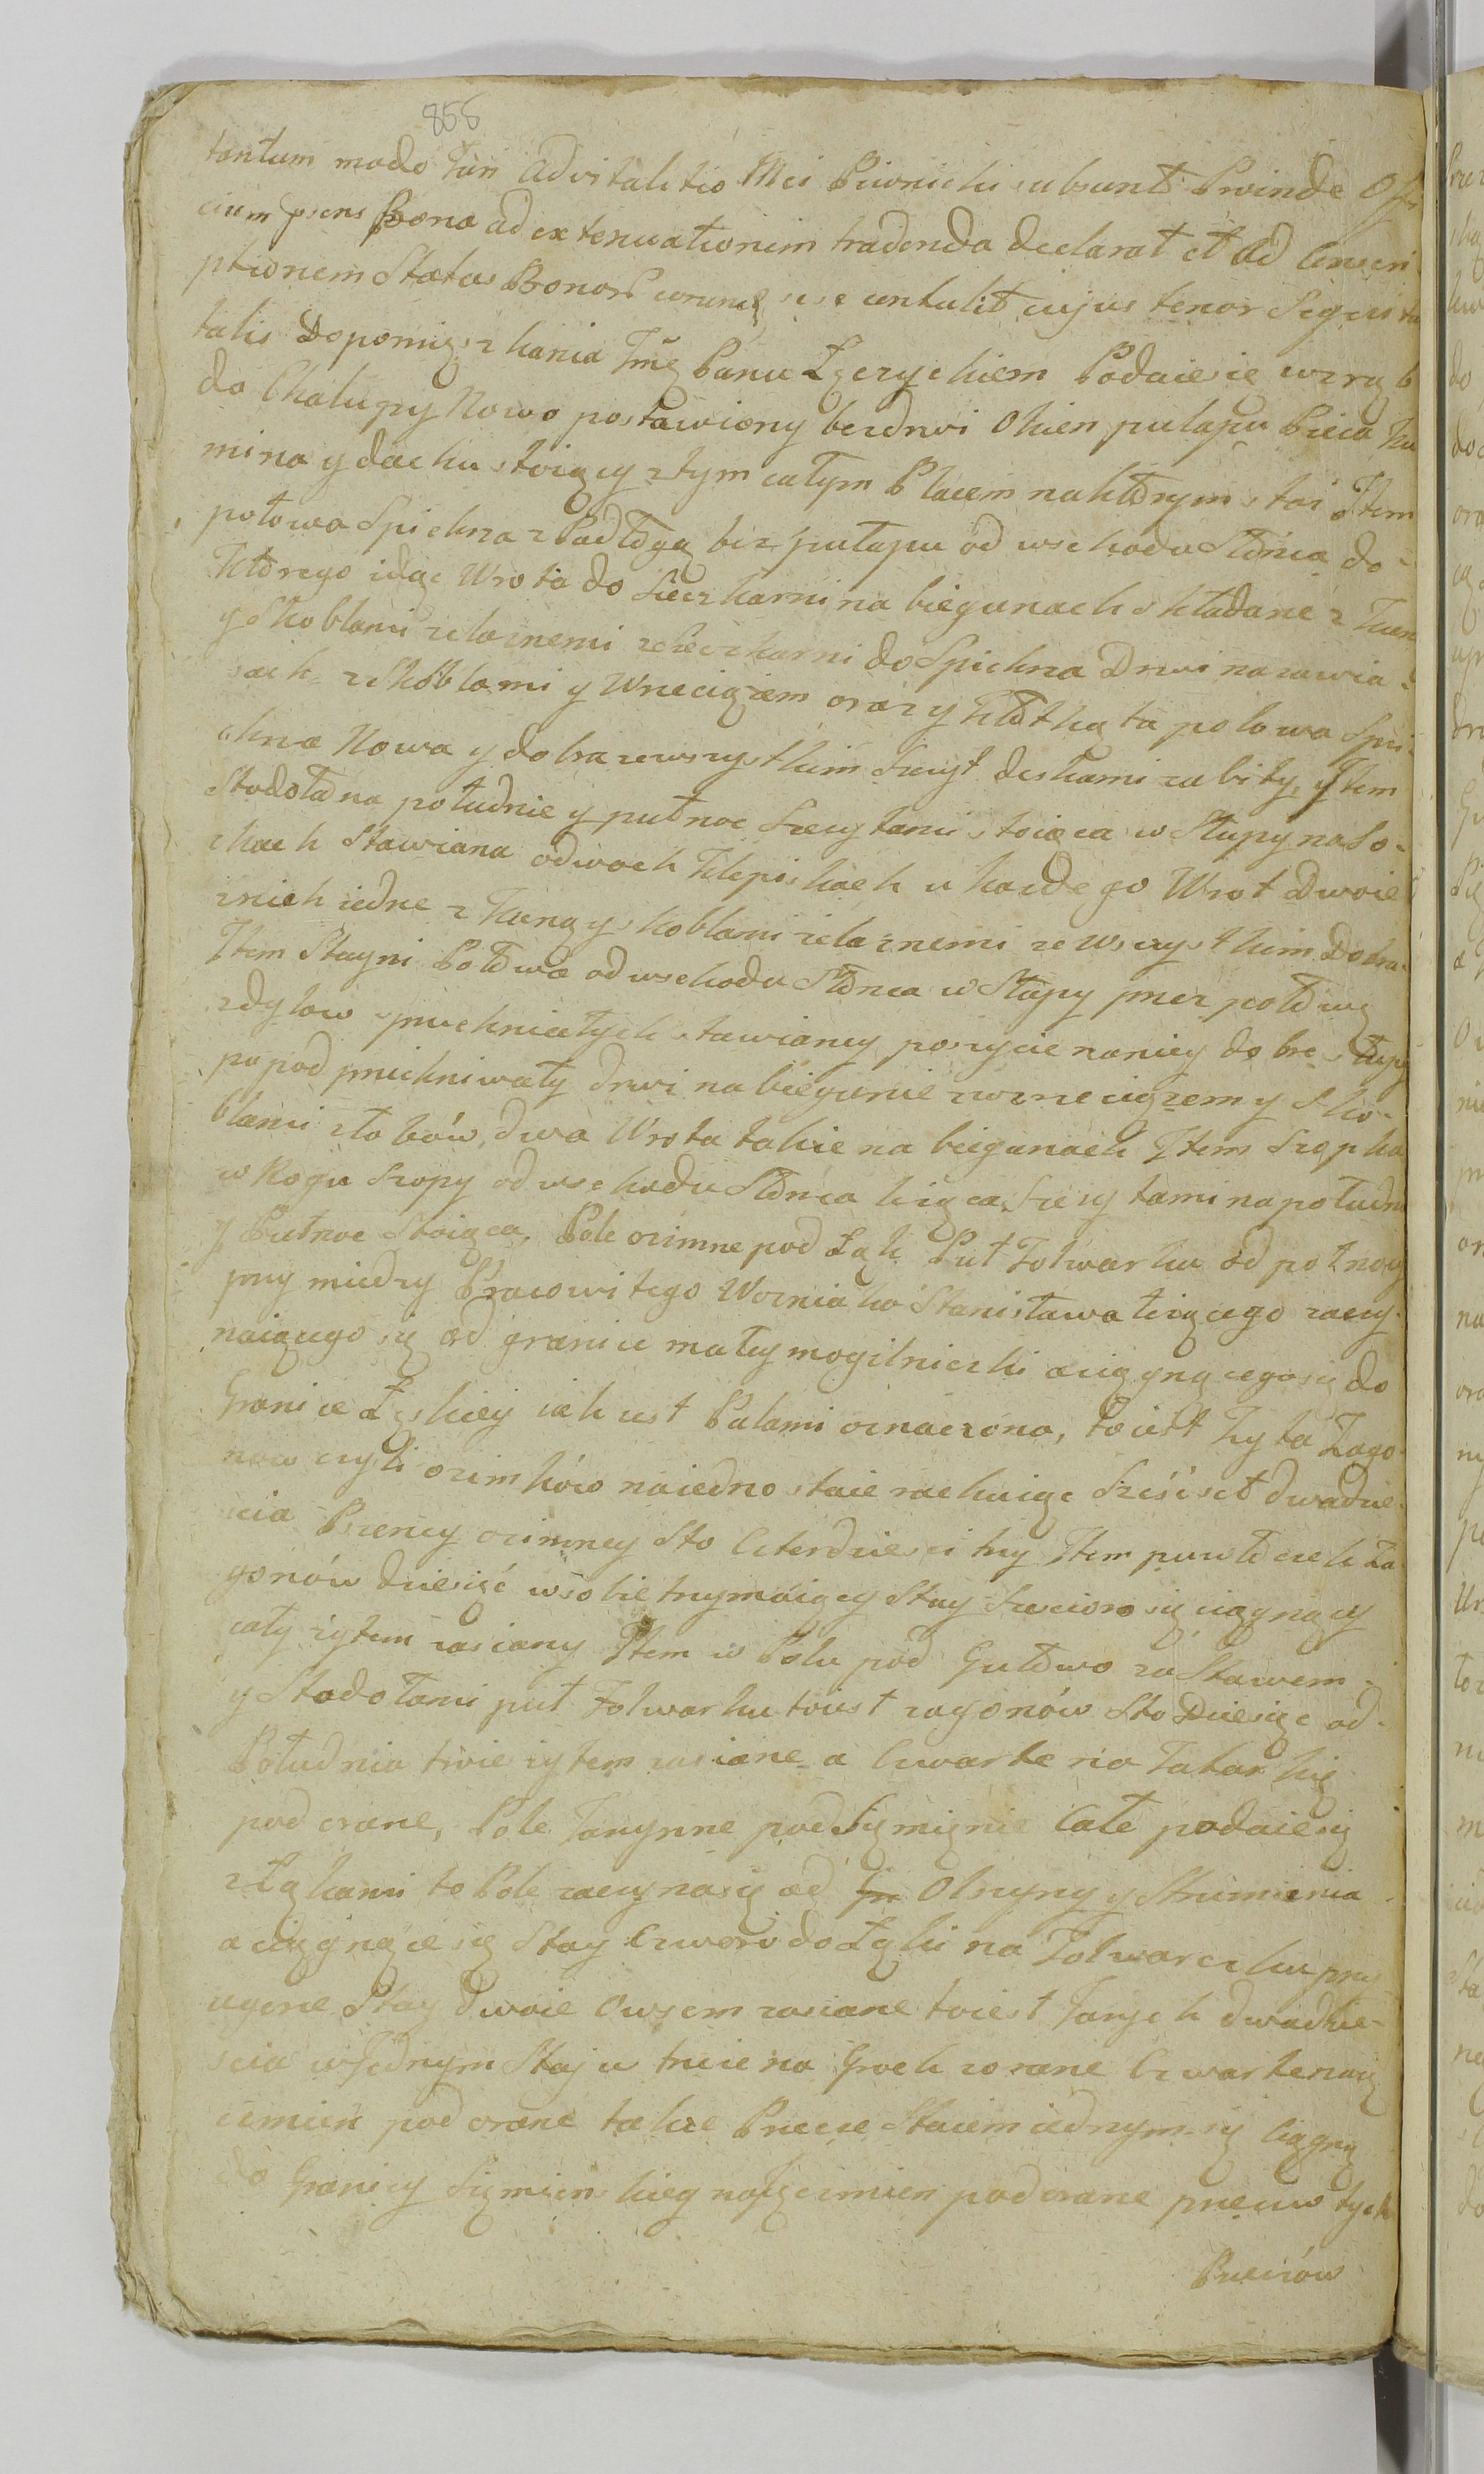 858
tantum modo Juri advitalitio Mci Piwnicki subsunt Proinde Offi
cium prsens Bona ad extenuationem tradenda declarat et ad Conscri
ptionem Status Bonor eorundq sese contulit cujus tenor Sequitur
talis Do pomięszkania Jmę Panu Zgerzyckiem Podaie się wzrąb
do Chałupy Nowo postawiony bez drwi Okien pułapu Pieca Ku
mina y dachu stoiący z tym całym Placem na którym stoi Jtem
połowa Spichrza z Podłogą bez pułapu od wschodu Słónca do
Którego idąc Wrota do Sieczkarni na biegunach składane z Kun
y Skoblami żelaznemi z Sieczkarni do Spichrza Drwi na zawia
sach z Skóblami y Wrzeciążem oraz y Kłótką ta połowa Spi
chrza Nowa y dobra zewszystkim Szczyt deskami zabity, Jtem
Stodoła na południe y pułnoc Szczytami stoiąca w Słupy na So-
chach Stawiana o dwoch Klepiskach u kazdego Wrot Dwoie
z nich iedne z Kuną y skoblami żelaznemi ze wszystkim Dobra
Jtem Stayni Połówa od wschodu Słónca w Słupy przez połówę
z dylow spruchniałych stawianey poszycie na niey dobre słupy
popodpruchniwały drwi na biegunie z wrzeciążem y Sko-
blami złobów, dwa Wrota takie na biegunach Jtem Szopka
w Rogu Szopy od wschodu Słónca leżąca Szczytami na południe
y Pułnoc Stoiąca, Pole ozimne pod Łąk Puł Folwarku od połnocy
przy miedzy Pracowitego Wozniaka Stanisława leżącego zaczy-
naiącego się od granice małey mogilniczki a ciągnącego się do
Granice Łęskiey iak iest Palami oznaczona, to iest Zyta Zago
now czyli ozimków na iedno staie rachuiąc Sześćset dwadzie
scia Pszenicy ozimney Sto Czterdziesci trzy Jtem puwłóczek Za
gonów dziesięć w sobie trzymáiący Stay Szescioro się ciągnący
cały żytem zasiany Jtem w Polu pod Gułówo za Stawem
y Stodołami puł Folwarku to iest zagonów Sto Dziesięc od
Południa troie żytem zasiane a Czwarte na Tatarkę
podorane, Pole Jarzynne pod Sięmięnie Całe podaie się
z Łąkami te Pole zaczyna się od Olszyny y Strumienia
a ciągnące się Stay Czworo do Łąki na Folwarczku przy
ugorne Stay dwoie Owsem zasiane to iest Jarych dwadzie-
scia w Jednym Staju trzecie na Groch zorane Czwarte na ię
czmień podorane także Przecze Staiem iednym się Ciągną
do Granicy Sięmieńskieg na Jęczmien podorane przeciw tych
Przeczów